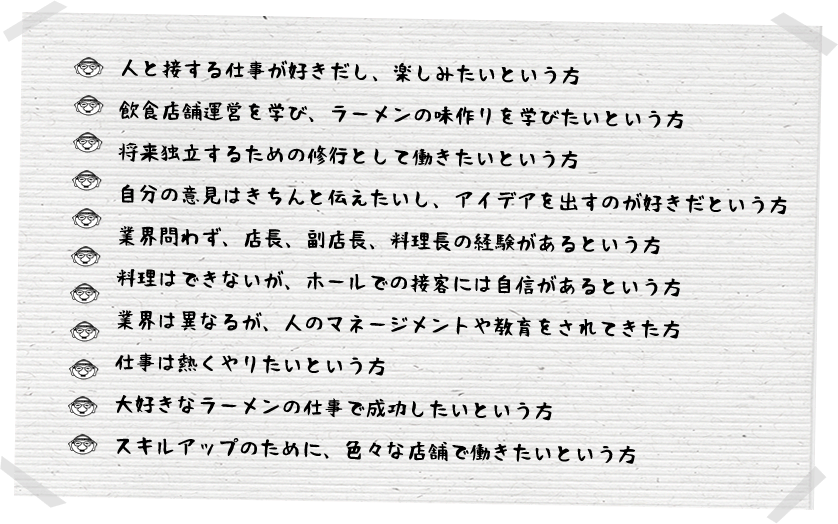 人と接する仕事が好きだし、楽しみたいという方
飲食店舗運営を学び、ラーメンの味作りを学びたいという方
将来独立するための修行として働きたいという方
自分の意見はきちんと伝えたいし、アイデアを出すのが好きだという方
業界問わず、店長、副店長、料理長の経験があるという方
料理はできないが、ホールでの接客には自信があるという方
業界は異なるが、人のマネージメントや教育をされてきた方
仕事は熱くやりたいという方
大好きなラーメンの仕事で成功したいという方
スキルアップのために、色々な店舗で働きたいという方